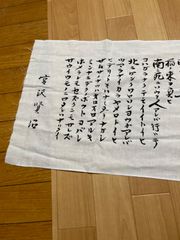 稲ノ束ヲ負ヒ
南ニ死ニソウナ人アレバ行ッテ
コワガラナクテモイイトイヒ
北ニケンクワヤソショウガアレバ
ツマラナイカラヤメロトイヒ
ヒデリノトキハナミダヲナガシ
サムサノナツハオロオロアルキ
ミンナニデクノボウトヨバレ
ホメラレモセズクニモサレズ
サウイウモノニワタシハナリタイ
宮沢賢治